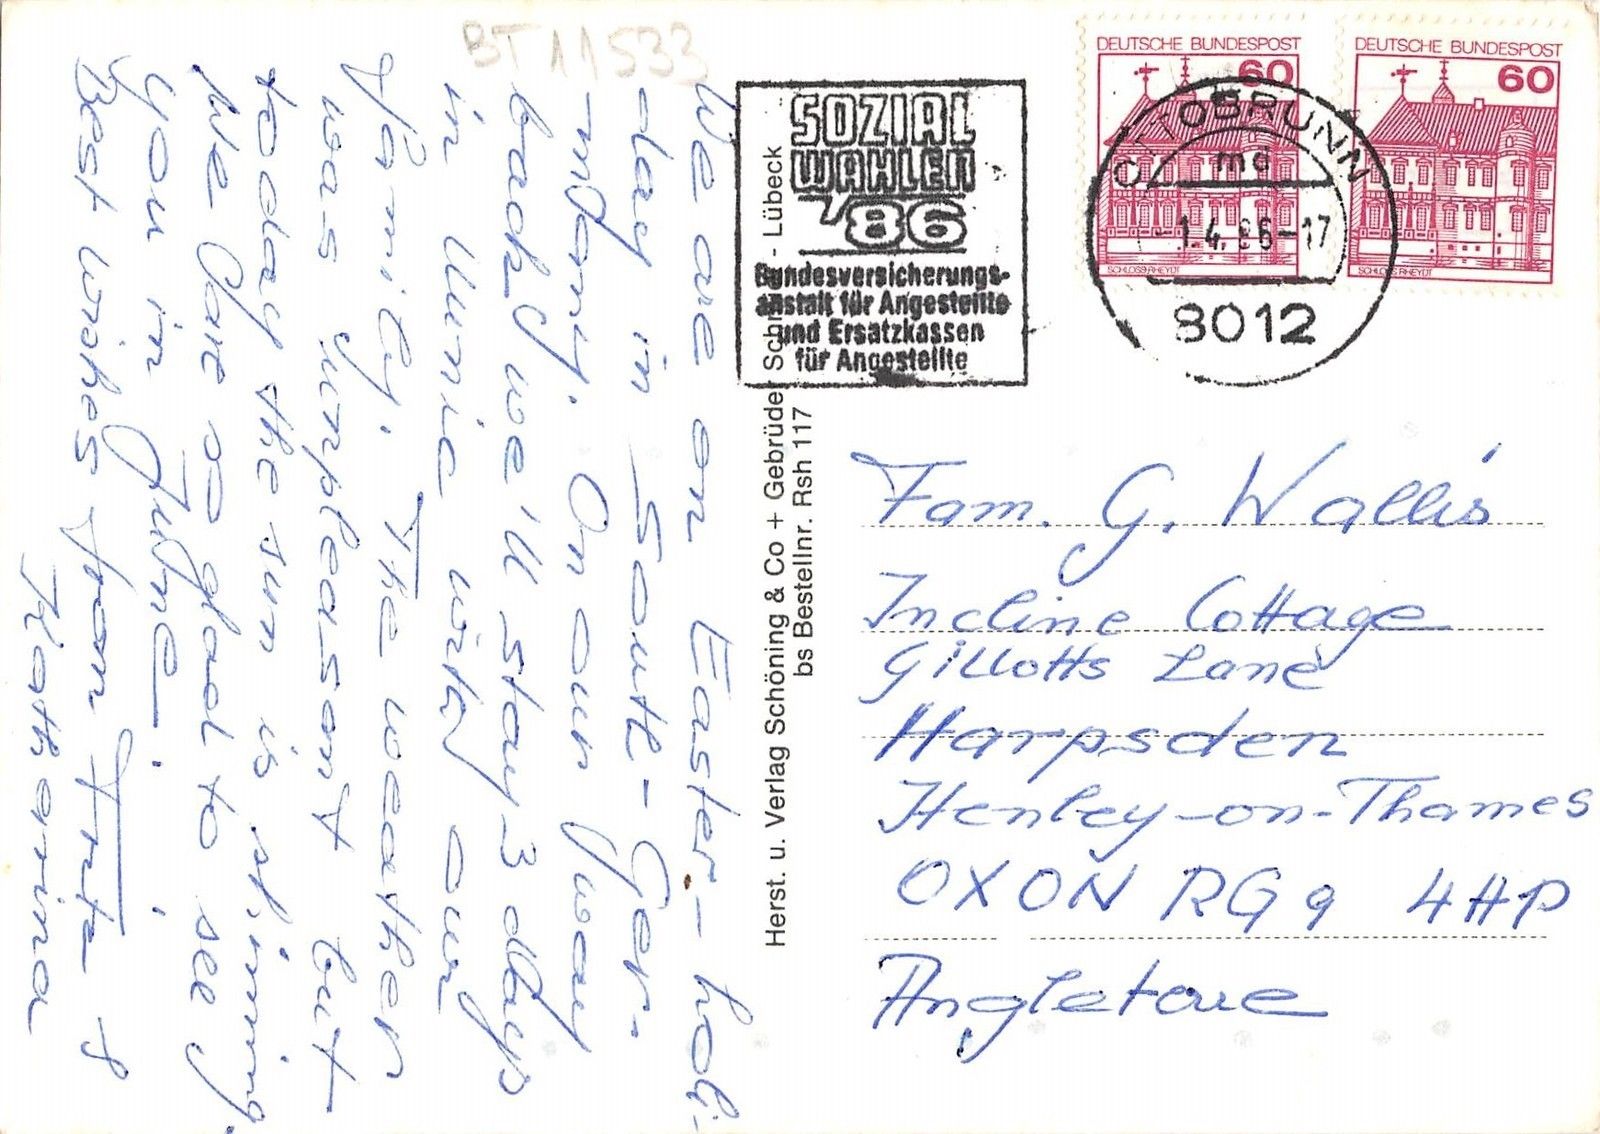 BT11533
We are on Easter-holi-
day in South-Ger-
many. On our way
back we'll stay 3 days
in Munic with our
family. The weather
was unpleasant but
today the sun is shining.
We are so glad to see
you in June!
Best wishes from &
Katharina
Herst. u. Verlag Schöning & Co + Gebrüder - Lübeck
bs Bestellnr. Rsh 117
SOZIAL
WAHLEN
'86
Bundesversicherungs-
anstalt für Angestellte
und Ersatzkassen
für Angestellte
DEUTSCHE BUNDESPOST
60
SCHLOSS RHEYDT
DEUTSCHE BUNDESPOST
60
SCHLOSS RHEYDT
OTTOBRUNN
md
-1.4.86-17
8012
Fam. G. Wallis
Incline Cottage
Gillotts Lane
Harpsden
Henley-on-Thames
OXON RG9 4HP